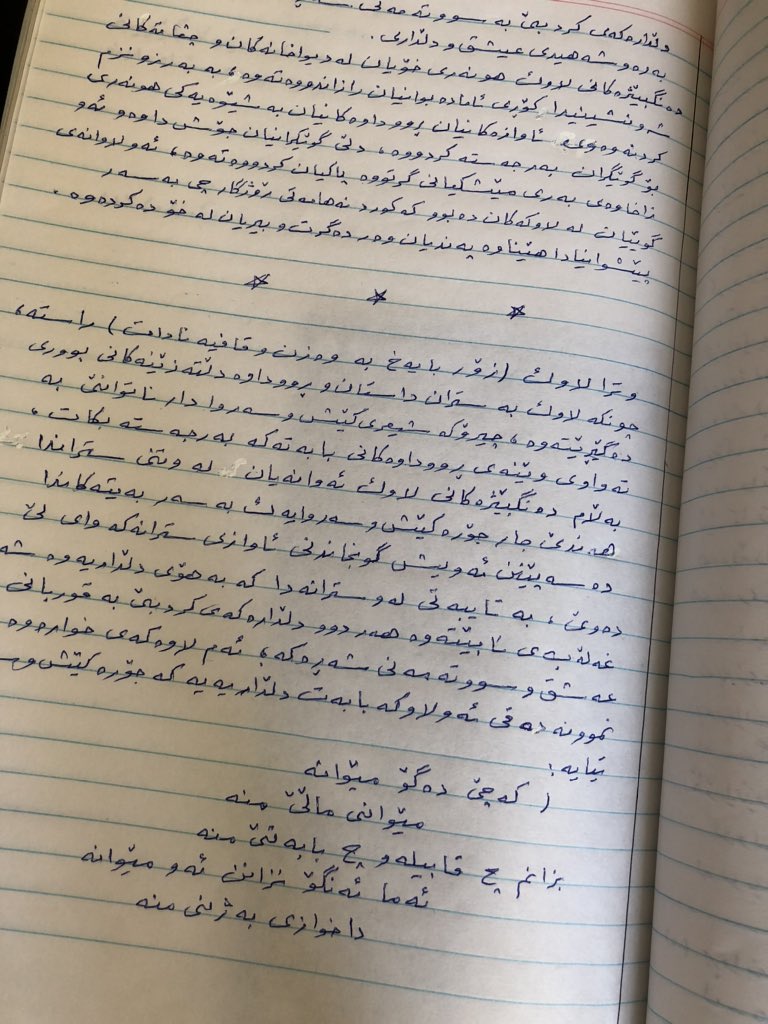 دلدارەکەی کرد بێ بە سووتەمەنی
بەرەو شەهیدی عیشق و دلداری.
دەنگبێژەکانی لاوک هونەری خۆیان لە دیواخانەکان و چقاتەکانی
شەونشینیدا کۆری ئامادەبوانیان رازاندووەتەوە، بە بەرزونزم
کردنەوەی ئاوازەکانیان رووداوەکانیان بە شێوەیەکی هونەری
بۆ گوێگران بەرجەستە کردووە، دڵی گوێگرانیان جۆش داوە و ئەو
ژاخاوەی بەری مێشکیانی گرتووە پاکیان کردووەتەوە، ئەو لاوانەی
گوێیان لە لاوکەکان دەبوو کە کورد نەهامەتی رۆژگار چی بە سەر
پێشوانیادا هێناوە پەندیان وەردەگرت و بیریان لە خۆ دەکردەوە.
* * *
وترا لاوک (زۆر بایەخ بە وەزن و قافیە نادات) راستە،
چونکە لاوک بە ستران داستان و رووداوە دڵتەزێنەکانی بووری
دەگێڕێتەوە، چیرۆکە شیعری کێش و سەروادار ناتوانێ بە
تەواوی وێنەی رووداوەکانی بابەتەکە بەرجەستە بکات،
بەڵام دەنگبێژەکانی لاوک ئەوانەیان لە وتنی ستراندا
هەندێ جار جۆرە کێش و سەروایەک بە سەر بەیتەکاندا
دەسەپێنن ئەویش گونجاندنی ئاوازی سترانەکە وای لێ
دەوێ، بە تایبەتی لەو سترانەدا کە بە هۆی دلداریەوە شە
غەڵبەی نابێتەوە هەردوو دلدارەکەی کرد بێ بە قوربانی
عەشق و سووتەمەنی شەڕەکە، ئەم لاوەکەی خوارەوە
نموونە دەقی ئەو لاوکە بابەت دلداریەیە کە جۆرە کێش و
تیایە:
( کەچێ دەگۆ میوانە
میوانی ماڵێ منە
بزانم چ قابیلەو چ بابەتێ منە
ئەما ئەنگۆ نزانن ئەو میوانە
داخوازی بەژنی منە